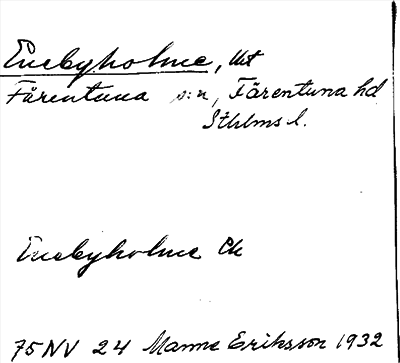 Enebyholme, Utt
Färentuna s:n, Färentuna hd
Sthlms l.
Enebyholme Ek
75 NV 24 Manne Eriksson 1932